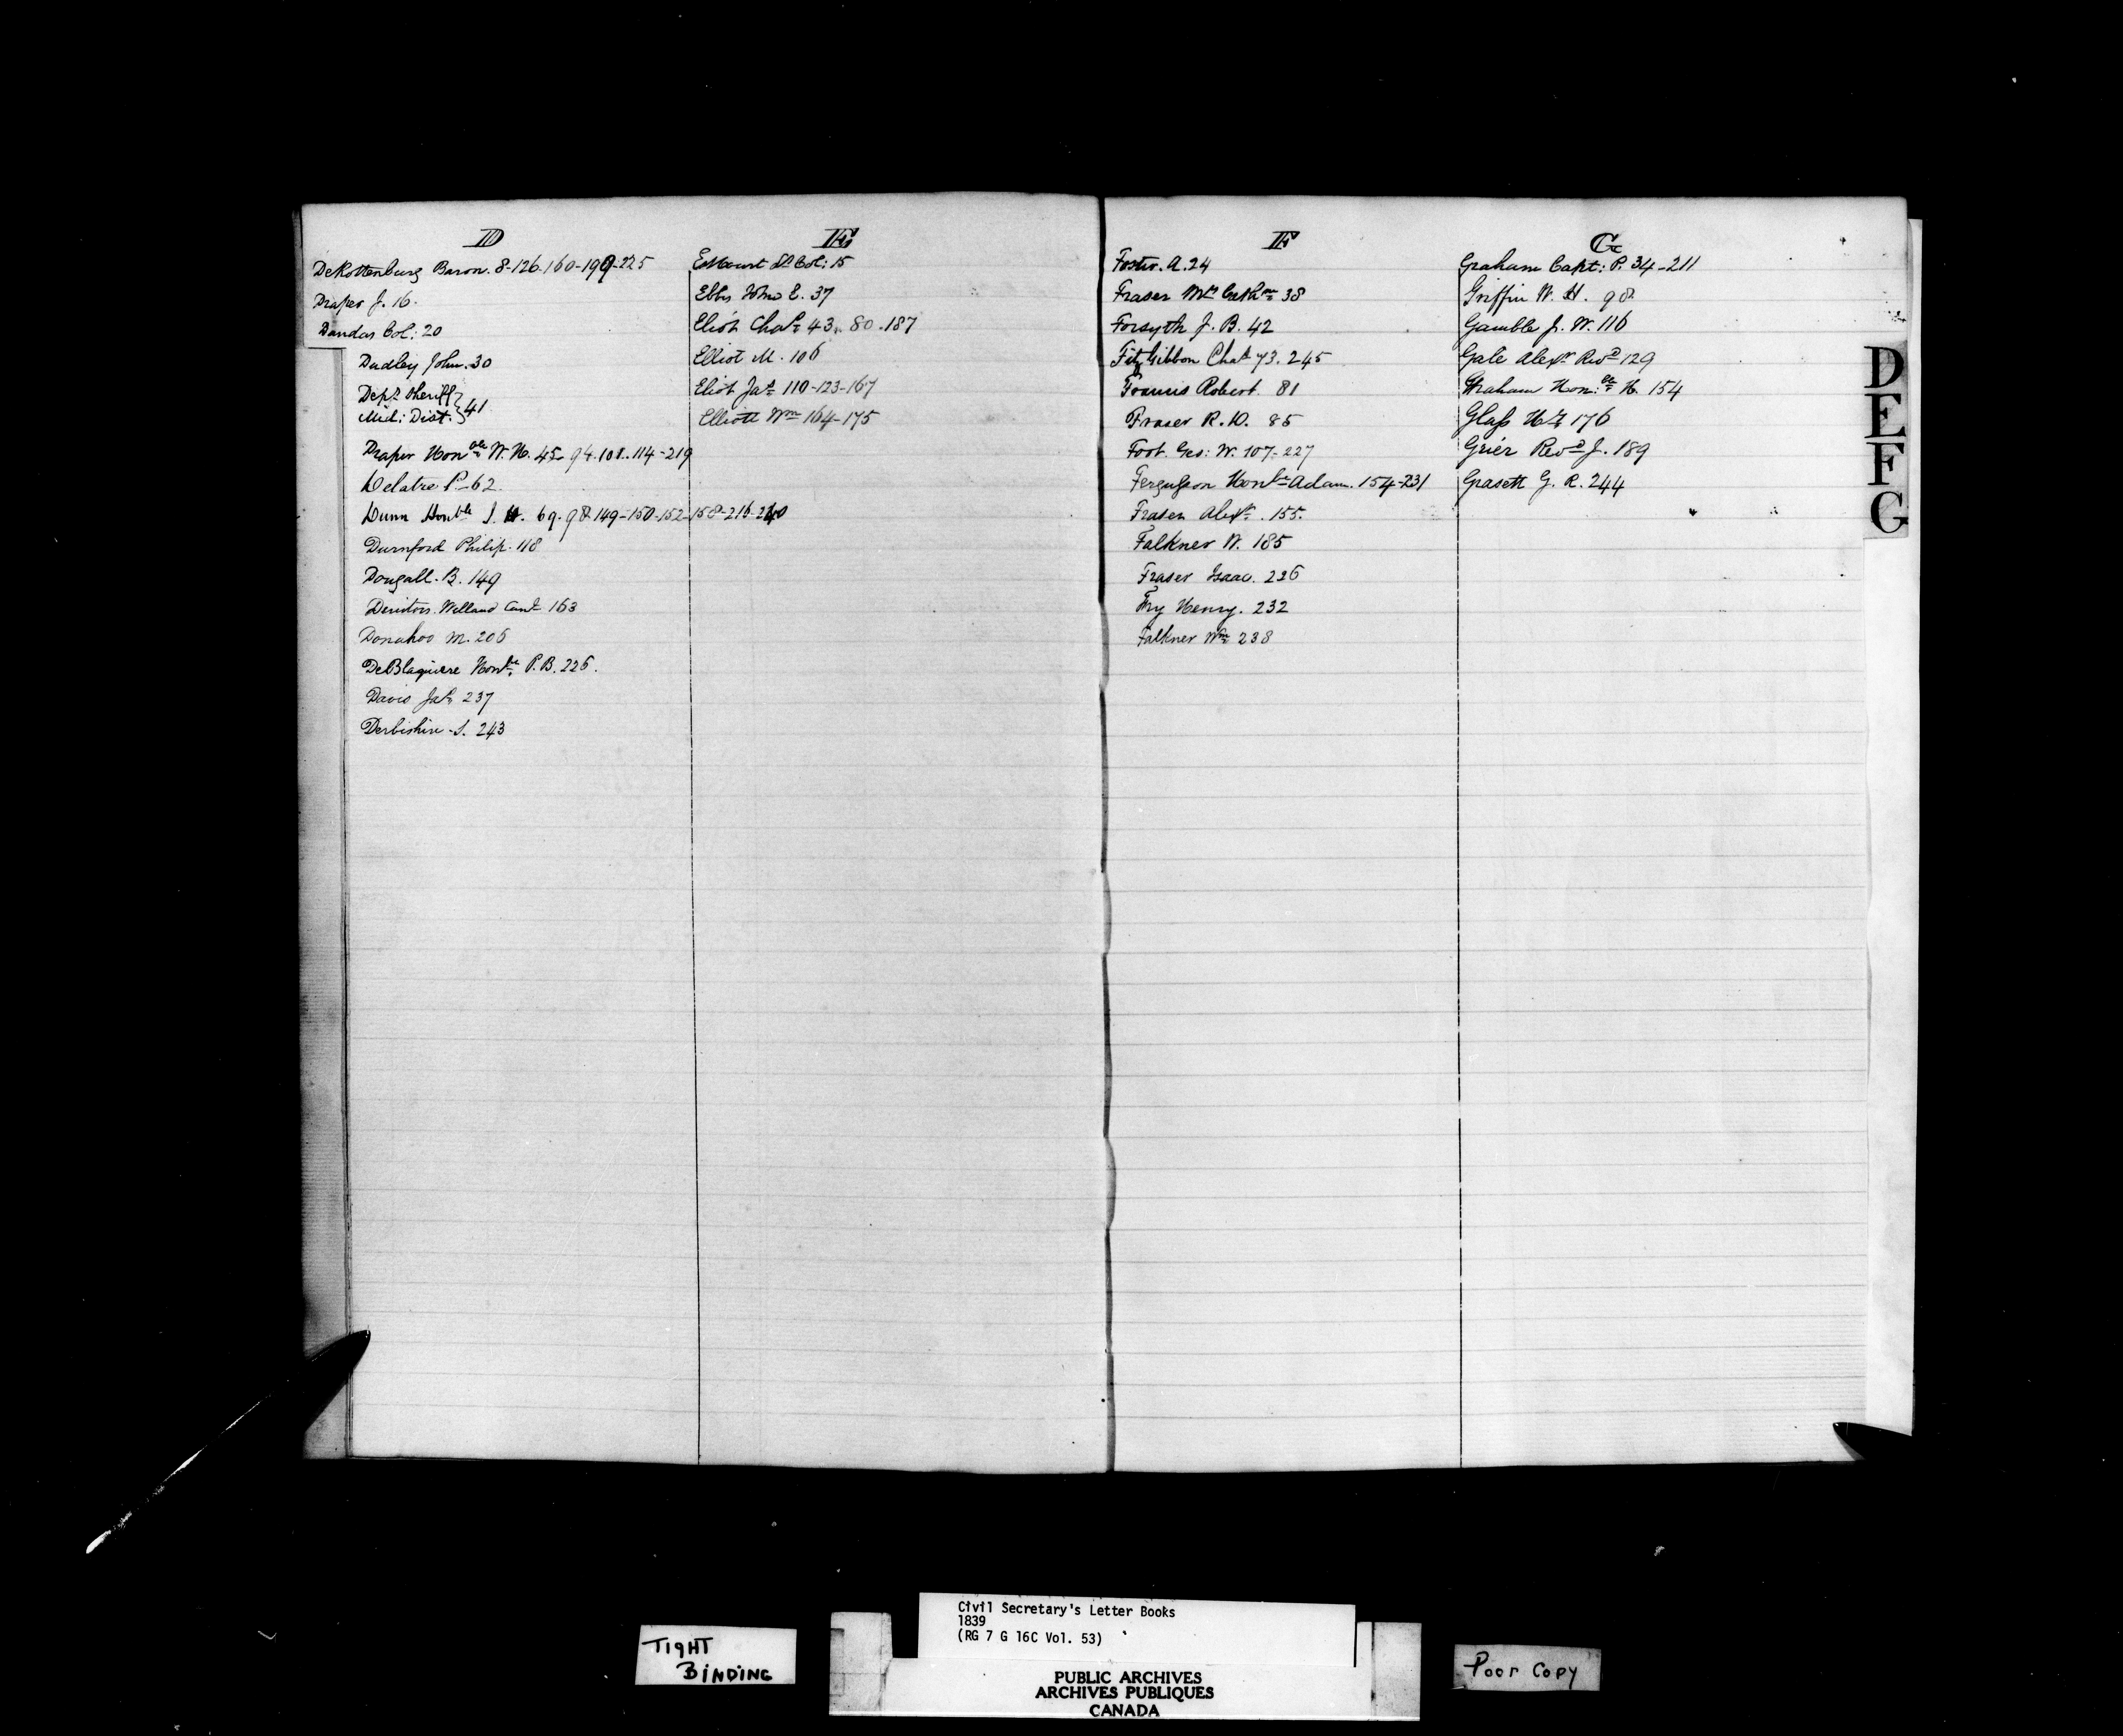 D
DeRottenburg Baron. 8-126-160-199-225
Draper J. 16.
Dundas Col: 20
Dudley John. 30
Depy. Sheriff
Mid: Dist. } 41
Draper Honble W. H. 45-94.101.114-219
Delatre P-62.
Dunn Honble J. H. 69.98-149-150-152-158-216-240
Durnford Philip. 118
Dougall. B. 149
Welland Canl 163
Donahoo M. 206
DeBlaquiere Honble P. B. 226.
Davis Jas 237
Derbishire S. 243
E
Estcourt Lt Col: 15
Ebbs John E. 37
Eliot Chas 43. 80.187
Elliot M. 106
Eliot Jas 110-123-167
Elliott Wm 164-175
F
Foster. A. 24
Fraser Mrs 38
Forsyth J. B. 42
FitzGibbon Chas 73. 245
Francis Robert. 81
Fraser R. D. 85
Foot. Geo: W. 107-227
Fergusson Honble Adam. 154-231
Fraser Alexr. 155.
Falkner W. 185
Fraser Isaac. 226
Fry Henry. 232
Falkner Wm 238
G
Graham Capt: P. 34-211
Griffin W. H. 98.
Gamble J. W. 116
Gale Alexr Revd 129
Graham Hon:ble H. 154
Glass Hy 176
Grier Revd J. 189
Grasett G. R. 244
D
E
F
G
TIGHT
BINDING
Civil Secretary's Letter Books
1839
(RG 7 G 16C Vol. 53)
PUBLIC ARCHIVES
ARCHIVES PUBLIQUES
CANADA
Poor Copy